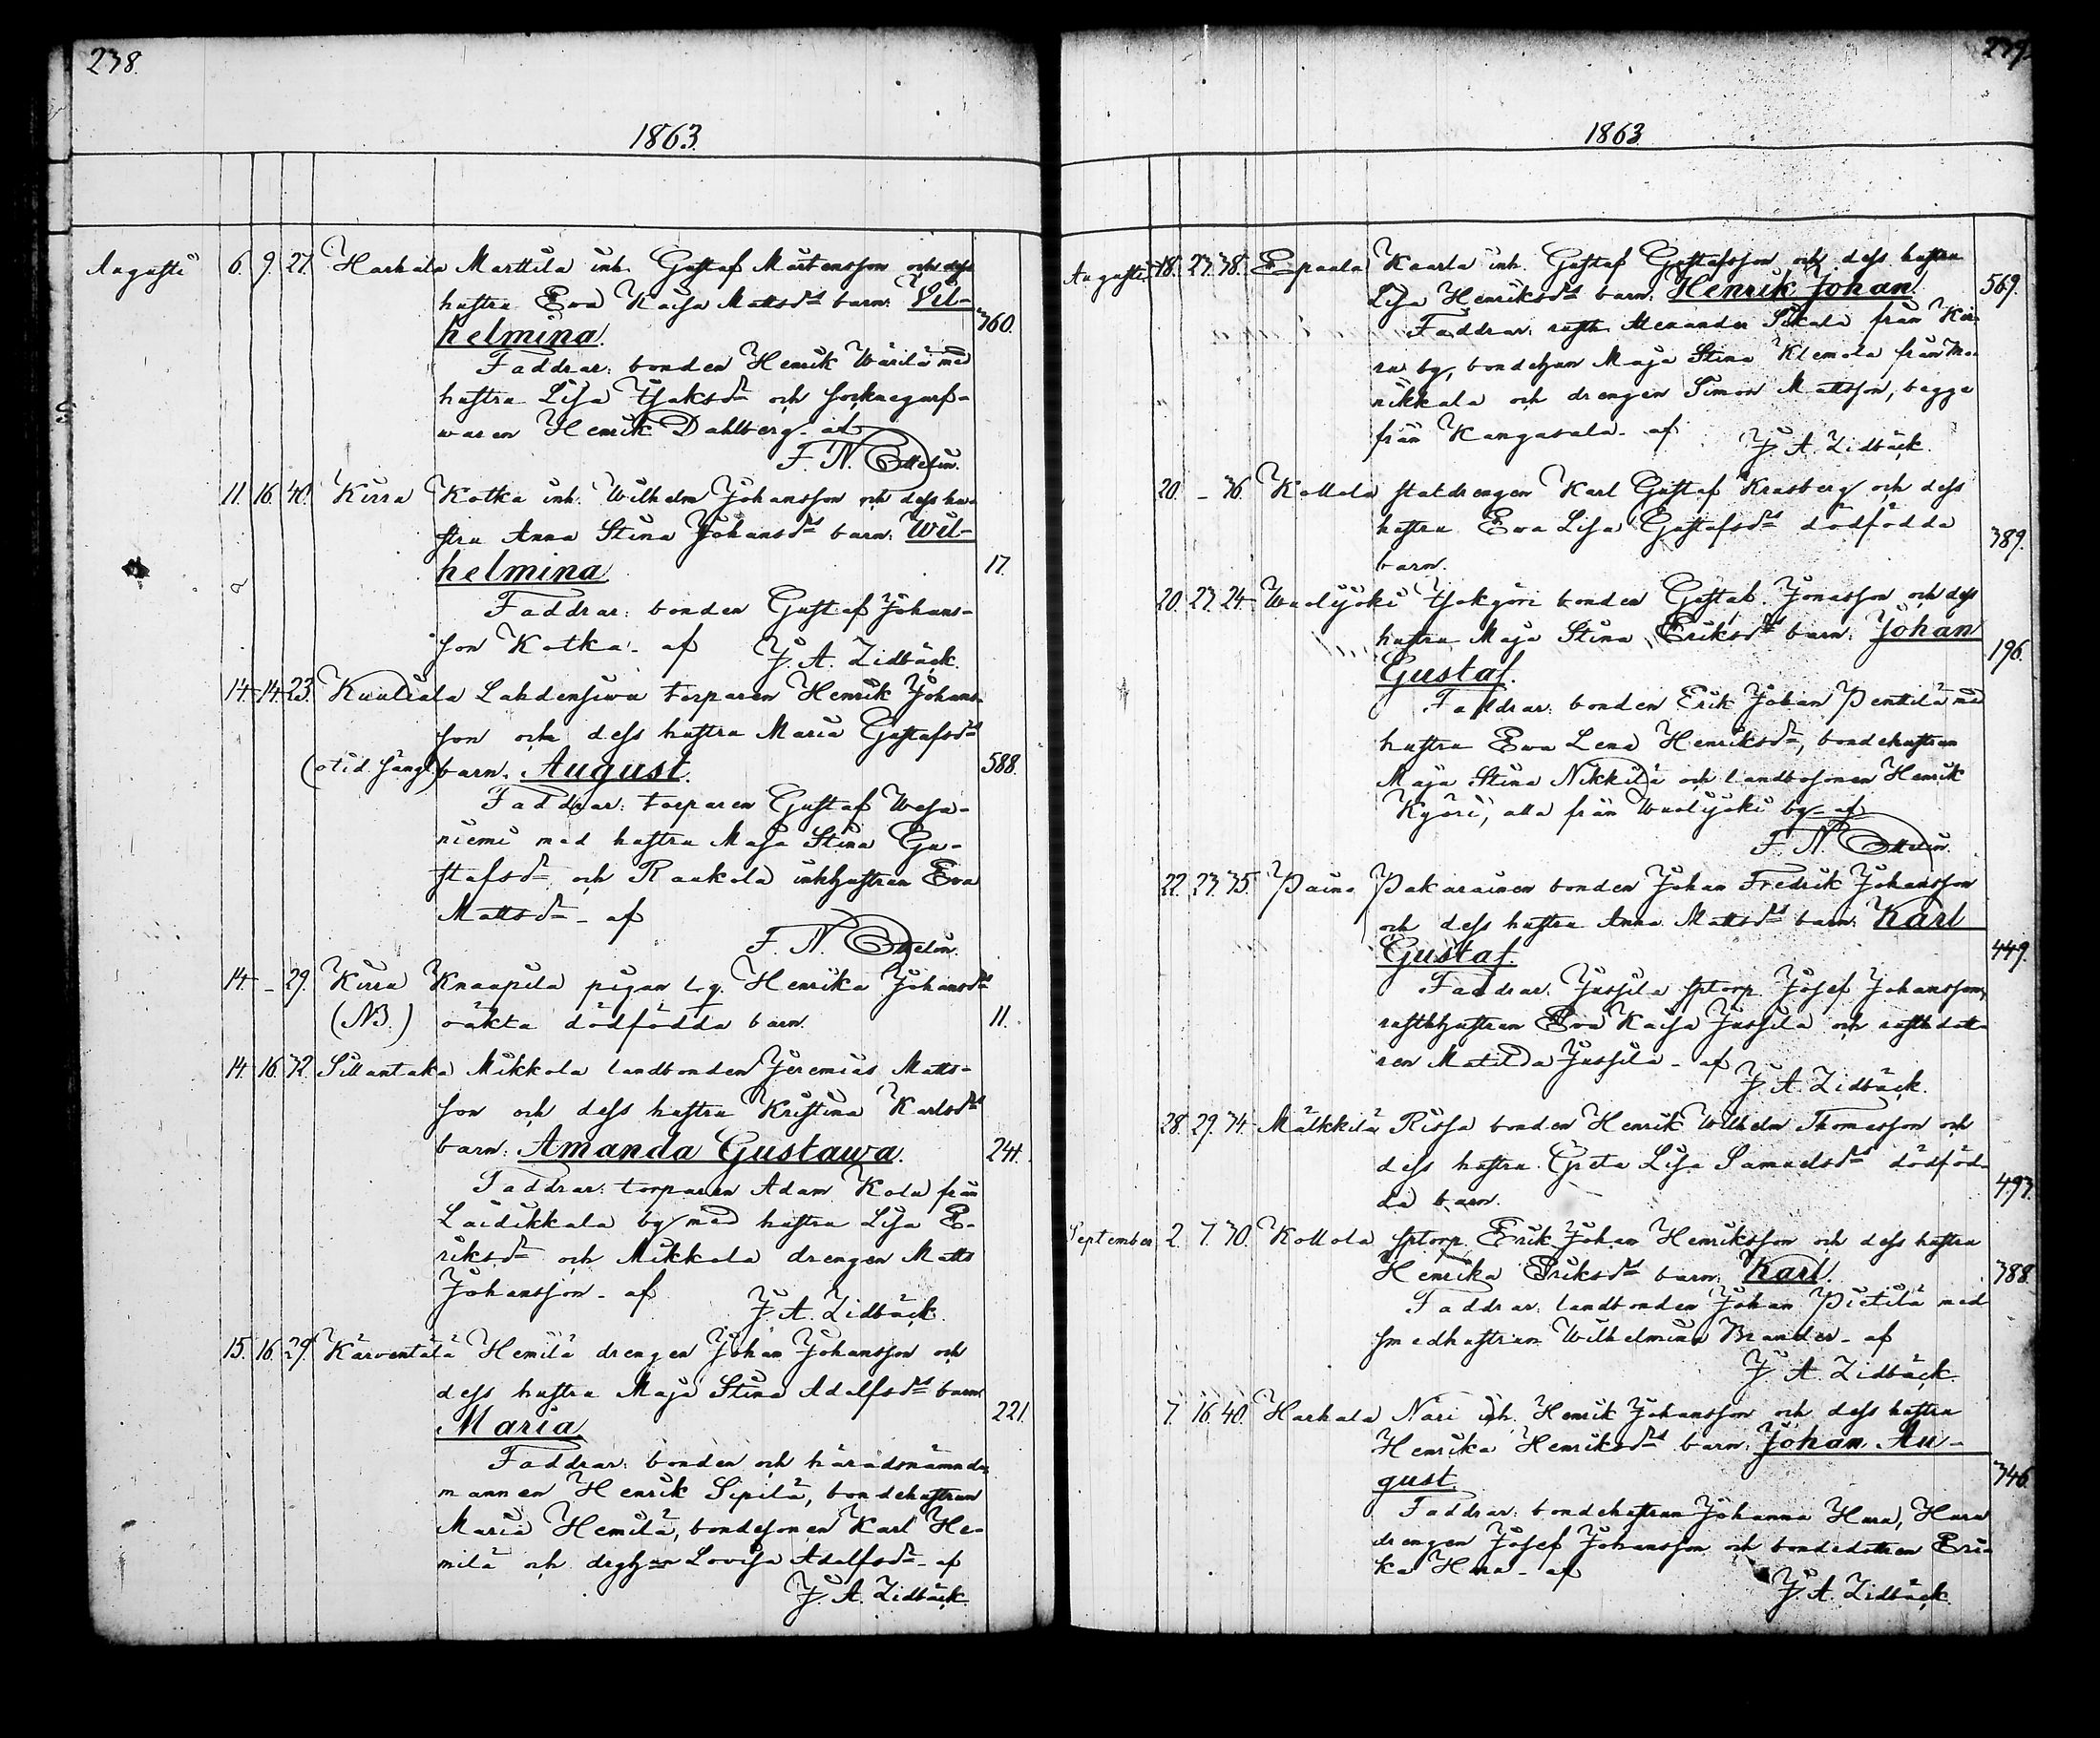 238.
1863.
Augusti 6. 9. 27. Harhala Marttila inh. Gustaf Mårtensson och dess
hustru Eva Kaisa Mattsdrs barn: Vil-
helmina. 360.
Faddrar: bonden Henrik Wärilä med
hustru Lisa Isaksdr och socknegarf-
waren Henrik Dahlberg - af
F. N. Ottelin.
11. 16. 40. Kirra Kotka inh. Wilhelm Johansson och dess hu-
stru Anna Stina Johansdrs barn: Wil-
helmina 17.
Faddrar: bonden Gustaf Johans-
son Kotka - af J. A. Lidbäck.
14. 14. 23. Kuuliala Lahdensivu torparen Henrik Johans-
son och dess hustru Maria Gustafsdrs
(otid. säng) barn: August. 588.
Faddrar: torparen Gustaf Wesa-
niemi med hustru Maja Stina Gu-
stafsdr och Raukola inhhustrun Eva
Mattsdr - af
F. N. Ottelin.
14. - 29. Kirra Knaapila pigan Henrika Johansdrs
(NB.) oäkta dödfödda barn. 11.
14. 16. 32. Sittantaka Mikkola landbonden Jeremias Matts-
son och dess hustru Kristina Karlsdrs
barn: Amanda Gustawa. 241.
Faddrar: torparen Adam Kola från
Laidikkala by med hustru Lisa E-
riksdr och Mikkola drengen Matts
Johansson - af
J. A. Lidbäck.
15. 16. 29. Kärventälä Hemilä drengen Johan Johansson och
dess hustru Maja Stina Adolfsdrs barn
Maria 221.
Faddrar: bonden och häradsnämnde-
mannen Henrik Sipilä, bondehustrun
Maria Hemilä, bondesonen Karl He-
milä och Lovisa Adolfsdr - af
J. A. Lidbäck.
239.
1863
Augusti 18. 23. 38. Epaala Kaarla inh. Gustaf Gustafsson och dess hustru
Lisa Henriksdrs barn: Henrik Johan. 569.
Faddrar: rusth. Alexander Sikala från
by, bondehn Maja Stina Klemola från
och drengen Simon Mattsson, begge
från Kangasala - af
J. A. Lidbäck.
20. - 36. Kollola statdrengen Karl Gustaf Krasberg och dess
hustru Ewa Lisa Gustafsdrs dödfödda
barn. 389.
20. 23. 24. Waolijoki Isokyöri bonden Gustaf Jonasson och dess
hustru Maja Stina Eriksdrs barn: Johan
Gustaf. 196.
Faddrar: bonden Erik Johan Penttilä med
hustru Ewa Lena Henriksdr, bondehustrun
Maja Stina Nikkilä och landbosonen Henrik
Kyöri, alla från Waolijoki by - af
F. N. Ottelin.
22. 23. 35. Paino Pakarainen bonden Johan Fredrik Johansson
och dess hustru Anna Mattsdrs barn: Karl
Gustaf. 449.
Faddrar: Jussila sptorp. Josef Johansson,
rusthhustrun Eva Kaisa Jussila och rusthdott-
ren Matilda Jussila - af
J. A. Lidbäck.
28. 29. 34. Mälkkilä Rissa bonden Henrik Wilhelm Thomasson och
dess hustru Greta Lisa Samuelsdrs dödföd-
da barn. 493.
September 2. 7. 30. Kollola sptorp. Erik Johan Henriksson och dess hustru
Henrika Eriksdrs barn: Karl. 388.
Faddrar: landbonden Johan Pietilä med
smedhustrun Wilhelmina Brander - af
J. A. Lidbäck.
7. 16. 40. Harhala Nari inh. Henrik Johansson och dess hustru
Henrika Henriksdrs barn: Johan Au-
gust. 346.
Faddrar: bondehustrun Johanna Hara, Hara
drengen Josef Johansson och bondedottren Eri-
ka Hara - af
J. A. Lidbäck.